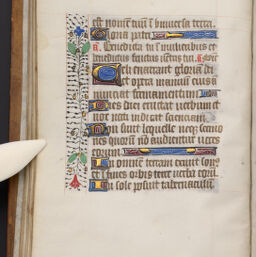 est nomen tuum in universa terra.
Gloria patri
a. Benedicta tu in mulieribus et
benedictus fructus ventris tui.
Celi enarrant gloriam dei
et opera manuum eius a
nnuntiat firmamentum
Dies diei eructat verbum et
nox nocti indicat scientiam
Non sunt loquele neque sermo
nes quorum non audientur voces
eorum
In omnem terram exivit son
et in fines orbis terre verba eorum
In sole posuit tabernaculum